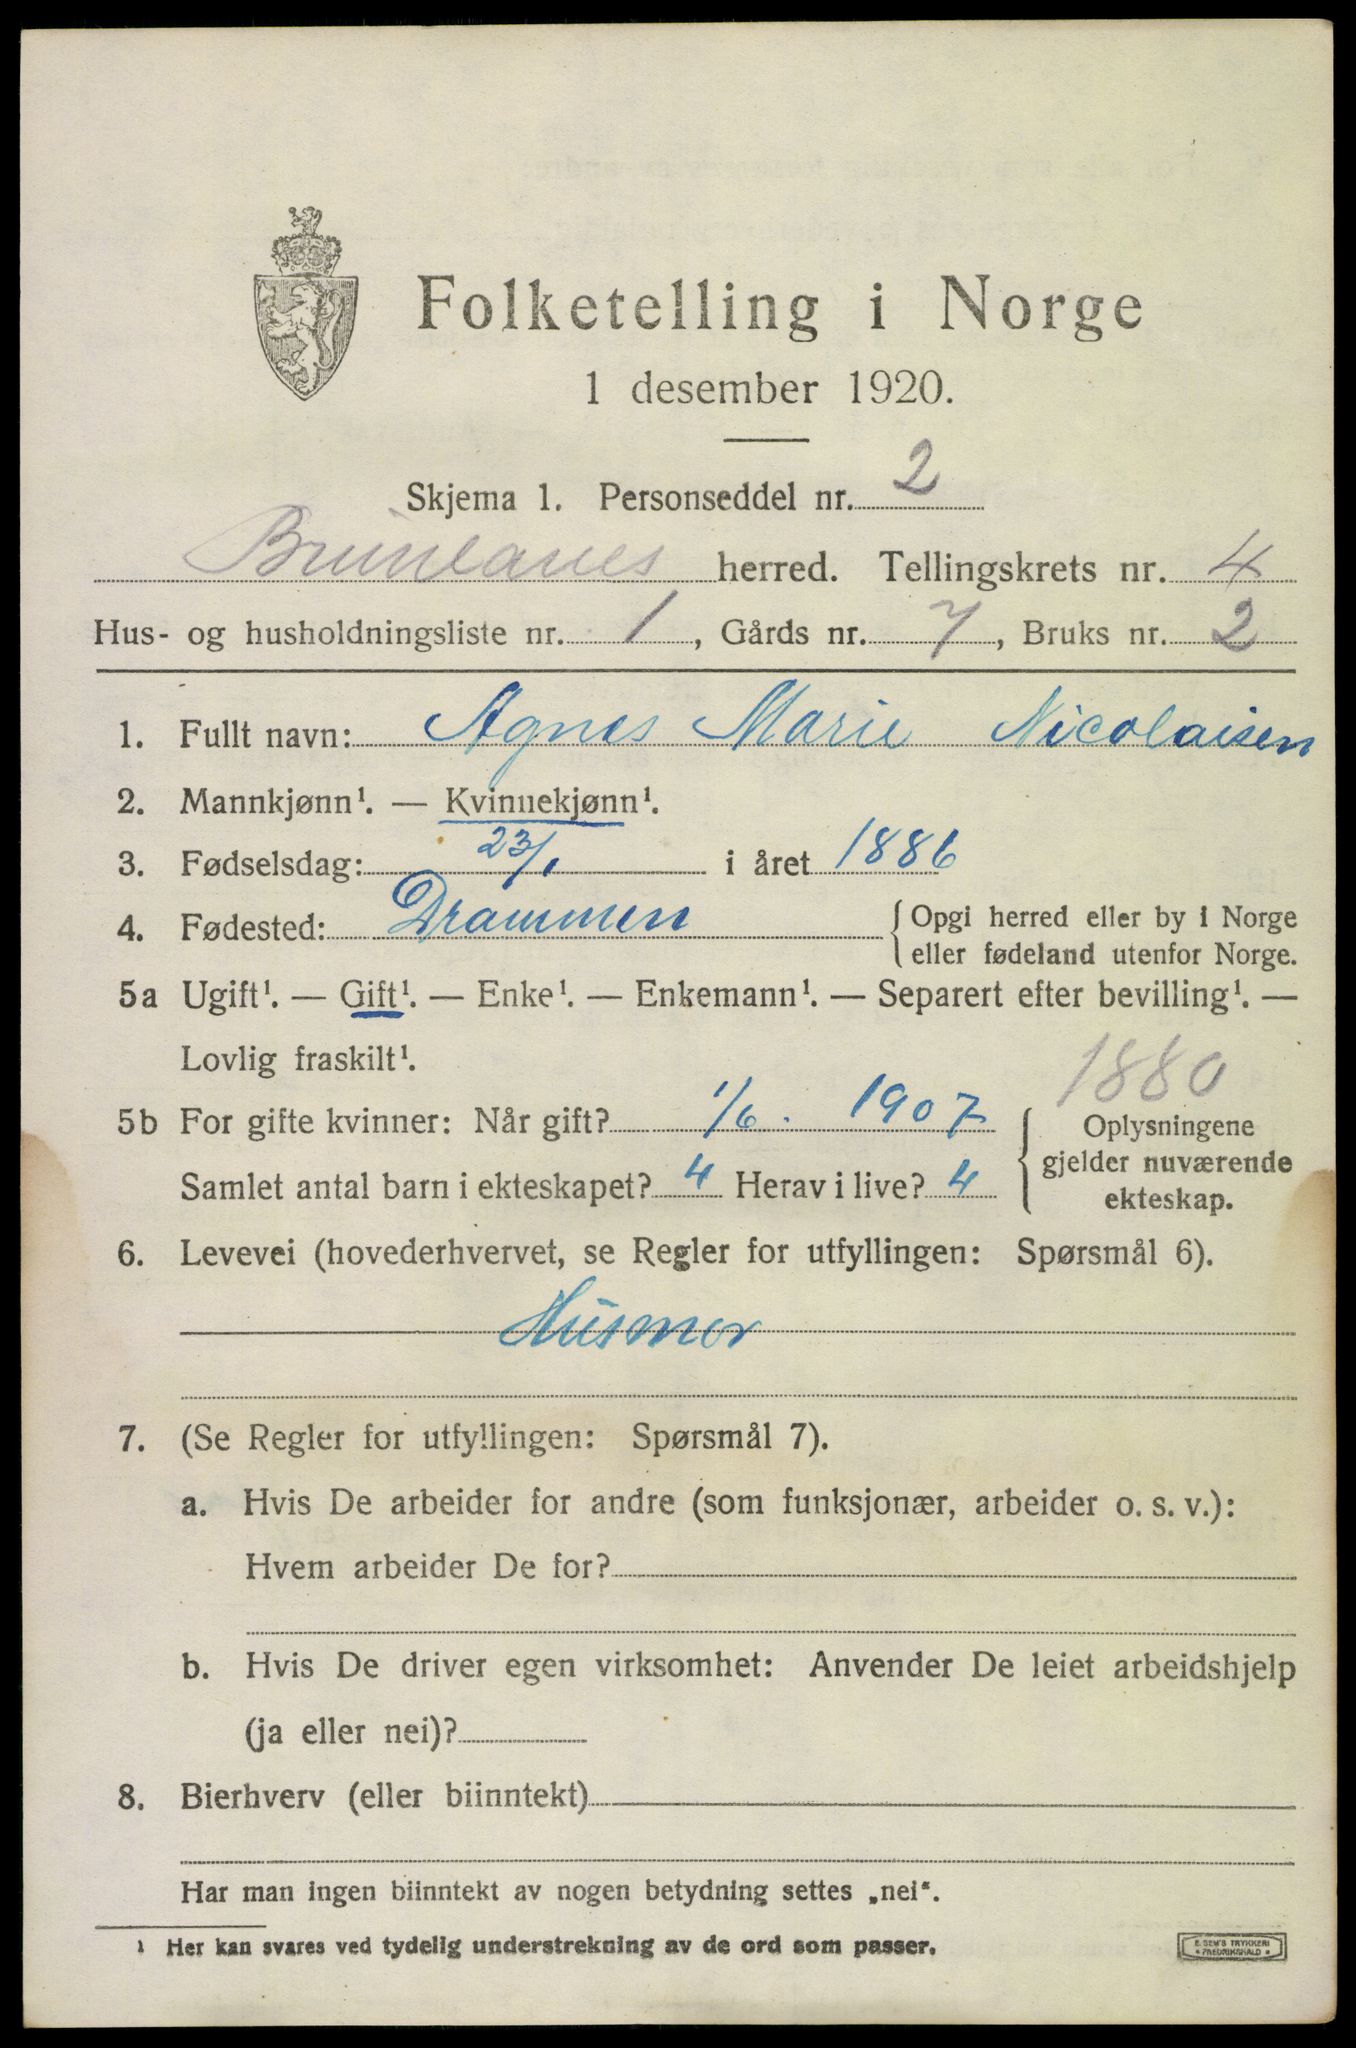 Folketelling i Norge
1 desember 1920.
Skjema 1. Personseddel nr. 2
Brunlanes herred. Tellingskrets nr. 4
Hus- og husholdningsliste nr. 1, Gårds nr. 7, Bruks nr. 2
1. Fullt navn: Agnes Marie Nicolaisen
2. Mannkjønn¹. — Kvinnekjønn¹.
3. Fødselsdag: 23/1 i året 1886
4. Fødested: Drammen { Opgi herred eller by i Norge
eller fødeland utenfor Norge.
5a Ugift¹. — Gift¹. — Enke¹. — Enkemann¹. — Separert efter bevilling¹. —
Lovlig fraskilt¹.
1880
5b For gifte kvinner: Når gift? 1/6. 1907
Samlet antal barn i ekteskapet? 4 Herav i live? 4
{ Oplysningene
gjelder nuværende
ekteskap.
6. Levevei (hovederhvervet, se Regler for utfyllingen: Spørsmål 6).
Husmor
7. (Se Regler for utfyllingen: Spørsmål 7).
a. Hvis De arbeider for andre (som funksjonær, arbeider o. s. v.):
Hvem arbeider De for?
b. Hvis De driver egen virksomhet: Anvender De leiet arbeidshjelp
(ja eller nei)?
8. Bierhverv (eller biinntekt)
Har man ingen biinntekt av nogen betydning settes „nei“.
¹ Her kan svares ved tydelig understrekning av de ord som passer.
E. SEM'S TRYKKERI
• FREDRIKSHALD •